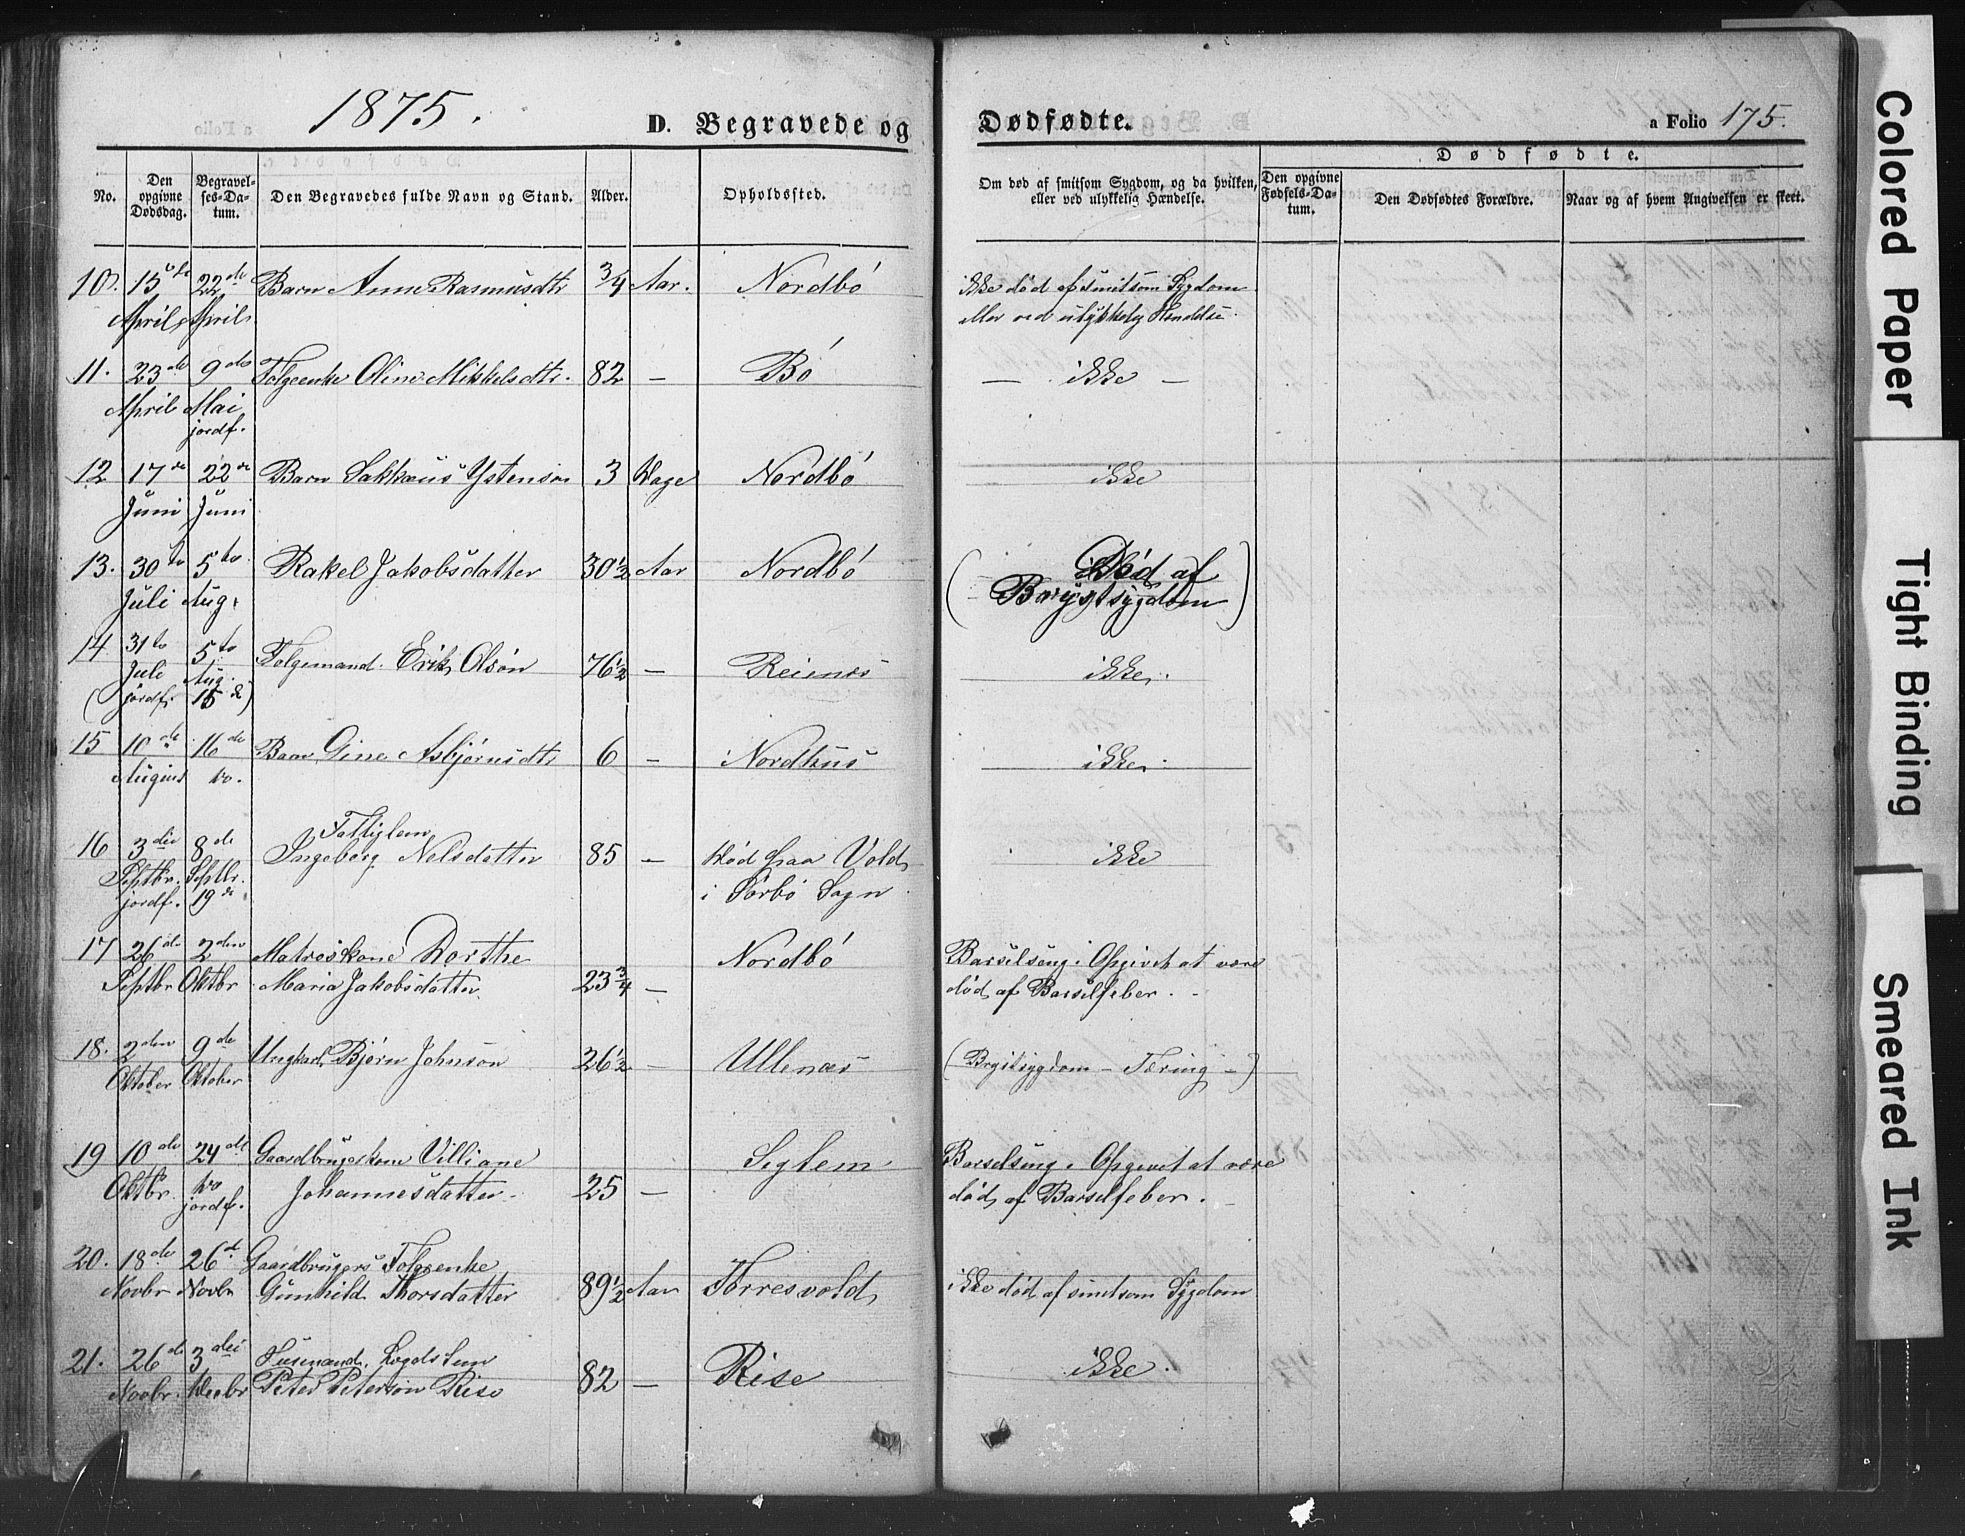 1875.
D. Begravede og Dødfødte.
a Folio 175.
No.
Den opgivne Dødsdag.
Begravelses-Datum.
Den Begravedes fulde Navn og Stand.
Alder.
Opholdssted.
Om død af smitsom Sygdom, og da hvilken, eller ved ulykkelig Hændelse.
Dødfødte.
Den opgivne Fødsels-Datum.
Den Dødfødtes Forældre.
Naar og af hvem Angivelsen er skeet.
10. 15de 22de Barn Anne Rasmusdtr 3/4 Aar. Nordbö ikke död af smitsom Sygdom
April April eller ved ulykkelig Hendelse.
11. 23de 9de Folgeenke Oline Mikkelsdtr. 82 — Bö — ikke —
April Mai
jordf.
12 17de 22de Barn Sakkæus Ystensön 3 Dage Nordbö ikke
Juni Juni
13. 30te 5te Rakel Jakobsdatter 30 1/2 Aar Nordbö (Död af
Juli Aug. Brystsygdom)
14 31te 5te Folgemand. Erik Olsön 76 1/2 — Reienæs ikke.
Juli Aug.
(jordf. 15de)
15 10de 16de Barn Gine Asbjörnsdtr 6 — Nordhus ikke.
August do.
16 3die 8de Fattiglem
Ingeborg Nelsdatter 85 — Död paa Vold ikke
Septbr. Septbr.
jordf. 19de i Sörbö Sogn
17 26de 2den Matroskone Dorthe Nordbö Barselseng. Opgivet at være
Septbr Oktbr Maria Jakobsdatter 23 3/4 — död af Barselfeber.
18. 2den 9de Ungkarl Björn Johnson 26 1/2 — Ullenæs (Brystsygdom – Tæring –)
Oktober Oktober
19 10de 24de Gaardbrugerkone Villiane Seglem Barselseng. Opgivet at være
Oktbr. do Johannesdatter. 25 — död af Barselfeber.
jordf.
20. 18de 26de Gaardbrugers Folgeenke
Novbr Novbr Gunhild Thorsdatter 89 1/2 Aar Torresvold ikke död af smitsom Sygdom
21. 26de 3die Husmand. Lægdslem Rise ikke.
Novbr. Decbr Peter Peterson Rise 82 —
Colored Paper
Tight Binding
Smeared Ink